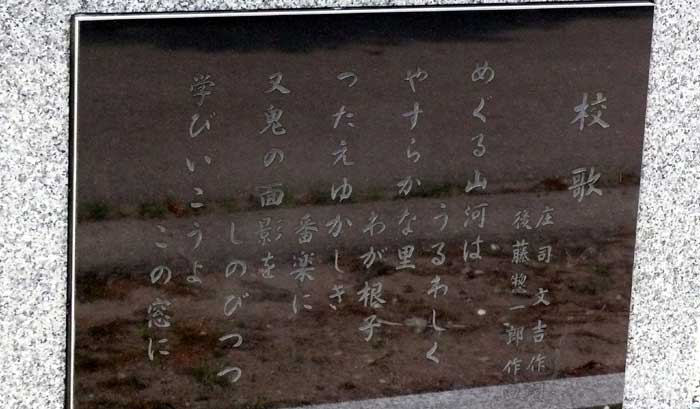 校歌
庄司文吉作
後藤惣一郎作
めぐる山河は
うるわしく
やすらかな里
わが根子
つたえゆかしき
番楽に
又鬼の面影を
しのびつつ
学びいこうよ
この窓に